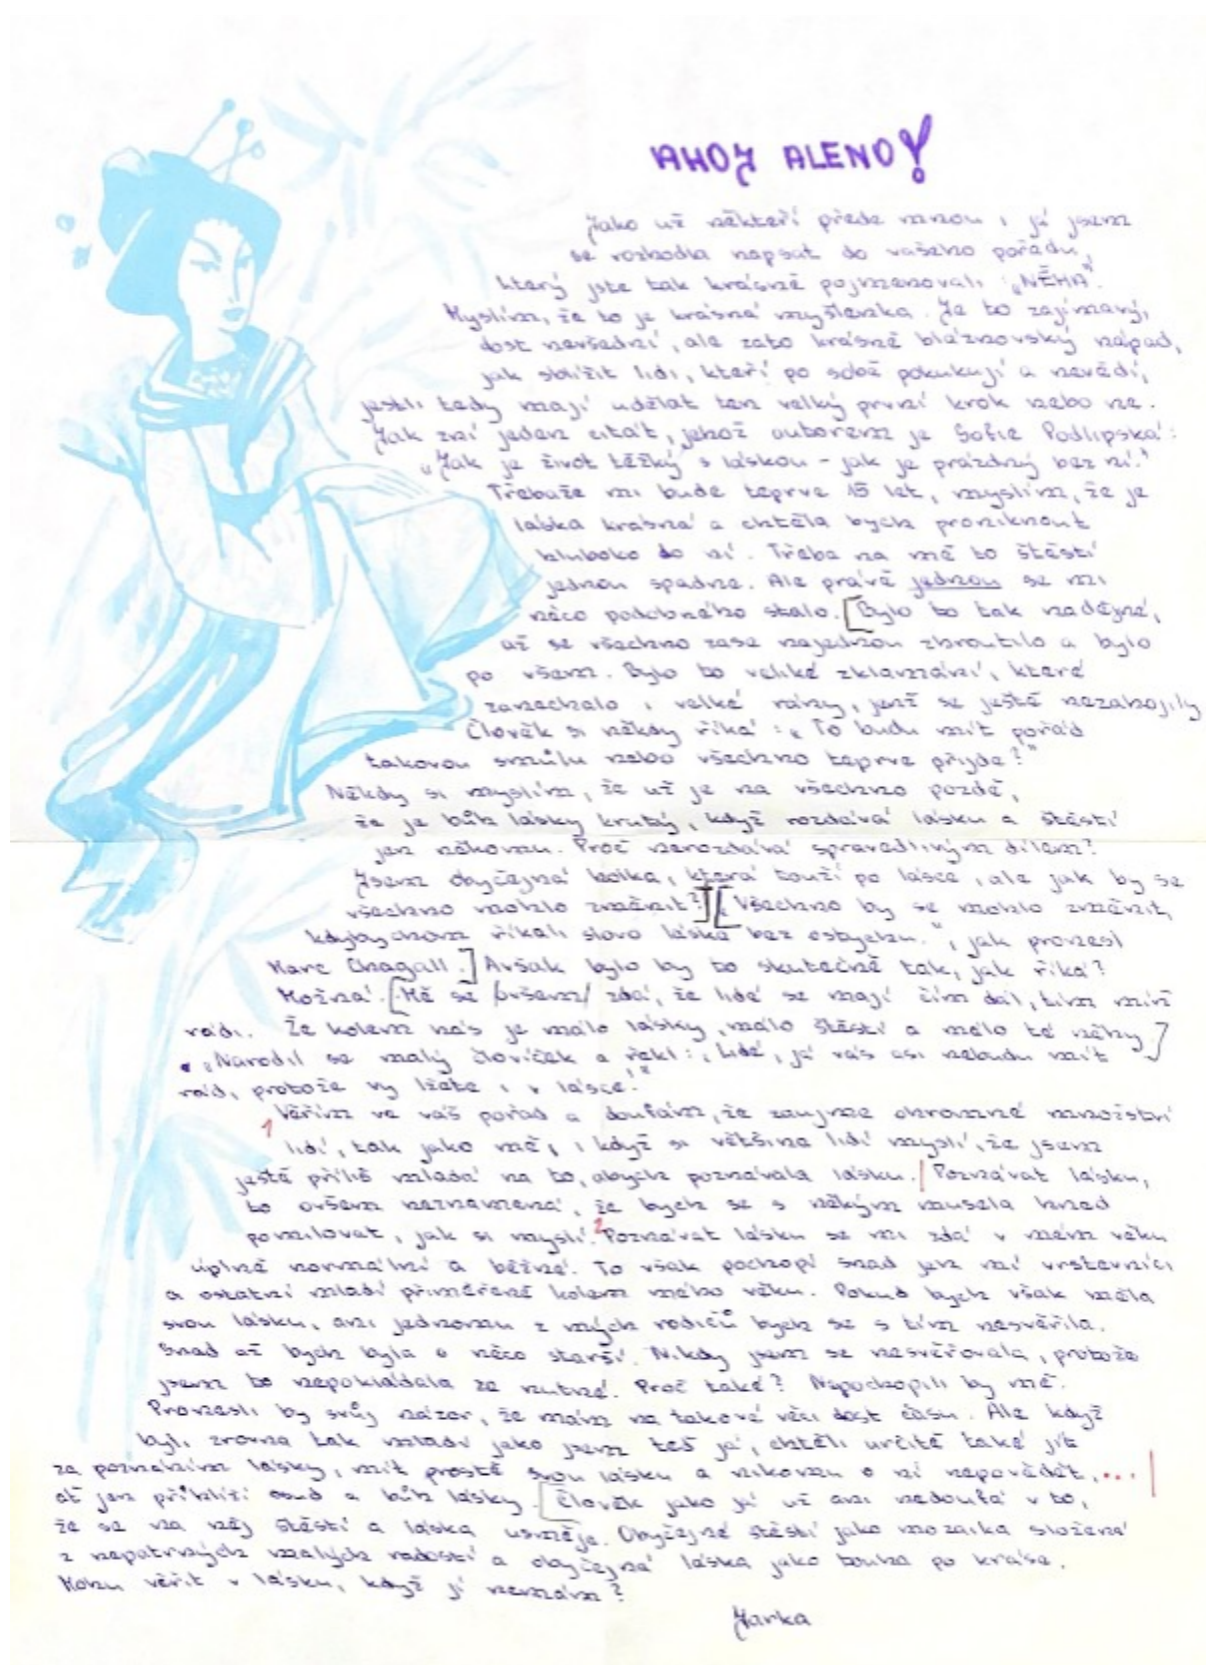 AHOJ ALENO!
Jako už někteří přede mnou i já jsem
se rozhodla napsat do vašeho pořadu,
který jste tak krásně pojmenovali „NĚHA".
Myslím, že to je krásná myšlenka. Je to zajímavý,
dost nevšední, ale zato krásně bláznovský nápad,
jak sblížit lidi, kteří po sobě pokukují a nevědí,
jestli tedy mají udělat ten velký první krok nebo ne.
Jak zní jeden citát, jehož autorem je Sofie Podlipská:
„Jak je život těžký s láskou - jak je prázdný bez ní."
Třebaže mi bude teprve 15 let, myslím, že je
láska krásná a chtěla bych proniknout
hluboko do ní. Třeba na mě to štěstí
jednou spadne. Ale právě jednou se mi
něco podobného stalo. [Bylo to tak nadějné,
až se všechno zase najednou zhroutilo a bylo
po všem. Bylo to veliké zklamání, které
zanechalo i velké rány, jenž se ještě nezahojily
Člověk si někdy říká: „To budu mít pořád
takovou smůlu nebo všechno teprve přijde?"
Někdy si myslím, že už je na všechno pozdě,
že je bůh lásky krutý, když rozdává lásku a štěstí
jen někomu. Proč nerozdává spravedlivým dílem?
Jsem obyčejná holka, která touží po lásce, ale jak by se
všechno mohlo změnit?] [„Všechno by se mohlo změnit,
kdybychom říkali slovo láska bez ostychu.", jak pronesl
Marc Chagall.] Avšak bylo by to skutečně tak, jak říká?
Možná. [Mě se /ovšem/ zdá, že lidé se mají čím dál, tím míň
rádi. Že kolem nás je málo lásky, málo štěstí a málo té něhy.]
„Narodil se malý človíček a řekl: ‚Lidé, já vás asi nebudu mít
rád, protože vy lžete i v lásce.'"
1 Věřím ve váš pořad a doufám, že zaujme ohromné množství
lidí, tak jako mě, i když si většina lidí myslí, že jsem
ještě příliš mladá na to, abych poznávala lásku. | Poznávat lásku,
to ovšem neznamená, že bych se s někým musela hned
pomilovat, jak si myslí. 2 Poznávat lásku se mi zdá v mém věku
úplně normální a běžné. To však pochopí snad jen mí vrstevníci
a ostatní mladí přiměřeně kolem mého věku. Pokud bych však měla
svou lásku, ani jednomu z mých rodičů bych se s tím nesvěřila.
Snad až bych byla o něco starší. Nikdy jsem se nesvěřovala, protože
jsem to nepokládala za nutné. Proč také? Nepochopili by mě.
Pronesli by svůj názor, že mám na takové věci dost času. Ale když
byli zrovna tak mladí jako jsem teď já, chtěli určitě také jít
za poznáním lásky, mít prostě svou lásku a nikomu o ní nepovědět, ... |
ať jen přiblíží osud a bůh lásky. [Člověk jako já už ani nedoufá v to,
že se na něj štěstí a láska usměje. Obyčejné štěstí jako mozaika složená
z nepatrných malých radostí a obyčejná láska jako touha po kráse.
Mohu věřit v lásku, když jí nemám?
Jarka